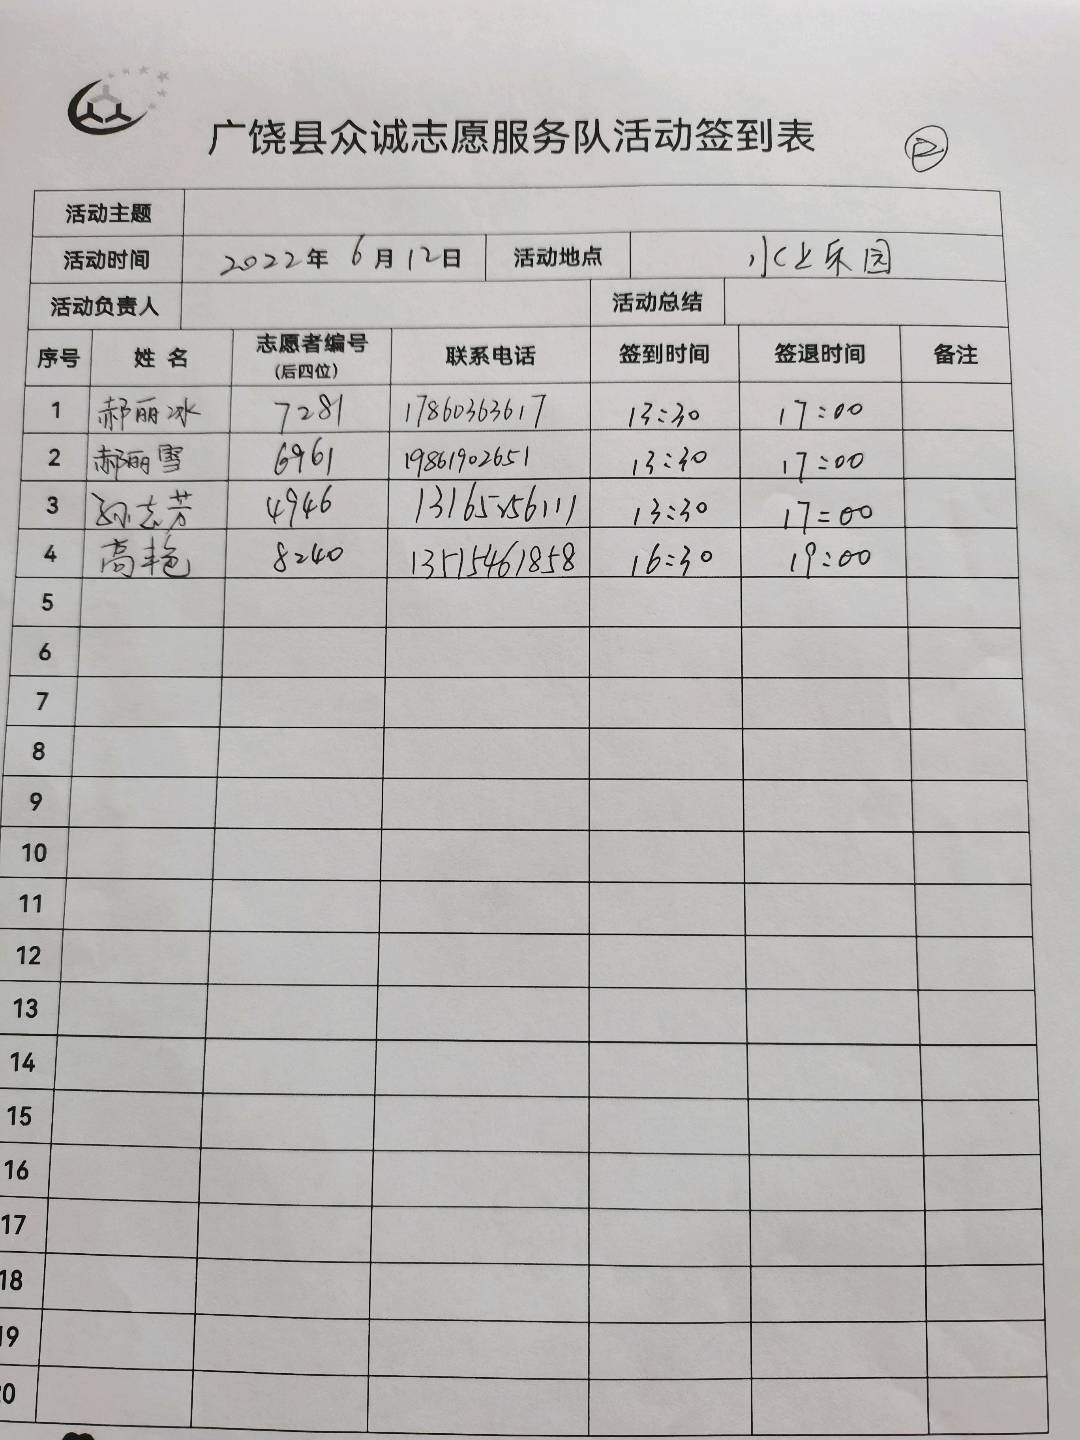 广饶县众诚志愿服务队活动签到表 ②
活动主题
活动时间 2022年 6月12日 活动地点 水上乐园
活动负责人 活动总结
序号 姓 名 志愿者编号 (后四位) 联系电话 签到时间 签退时间 备注
1 郝丽冰 7281 17860363617 13:30 17:00
2 郝丽雪 6961 19861902651 13:30 17:00
3 孙志芳 4946 13165256111 13:30 17:00
4 高艳 8240 13515461858 16:30 19:00
5
6
7
8
9
10
11
12
13
14
15
16
17
18
19
20